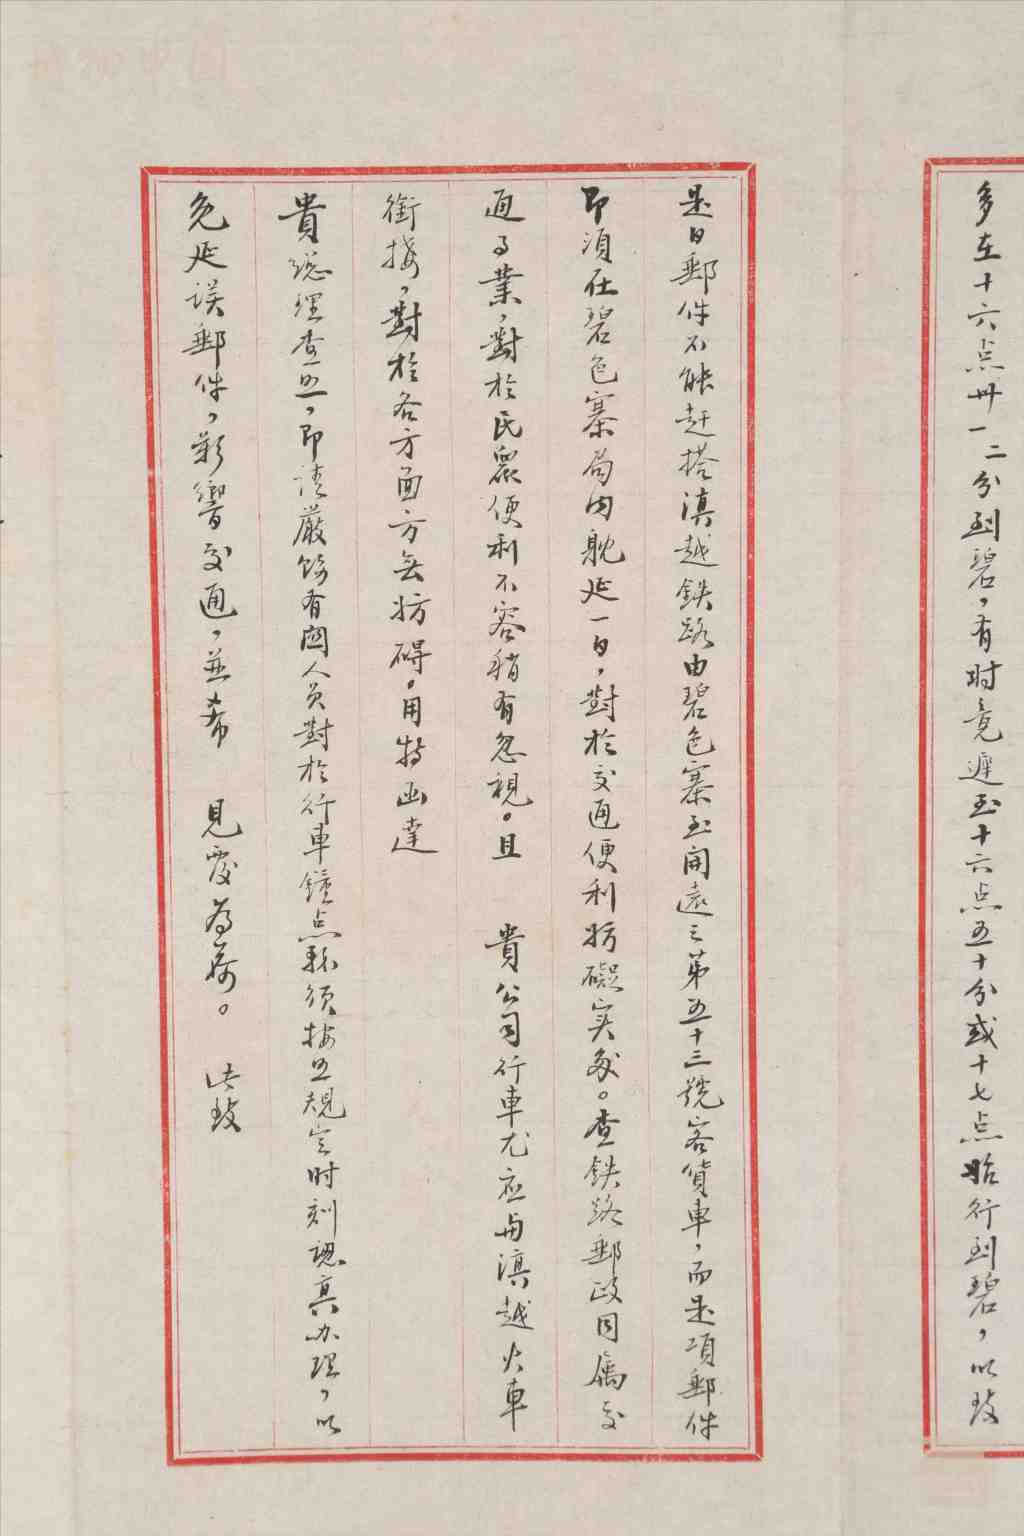 多在十六点卅一二分到碧，有时竟遲至十六点五十分或十七点始行到碧，以致
是日郵件不能赶搭滇越鉄路由碧色寨至開遠之第五十三號客貨車，而是項郵件
即須在碧色寨局内躭延一日，對於交通便利妨礙实多。查鉄路郵政同属交
通事業，對於民眾便利不容稍有忽視。且 貴公司行車尤应与滇越火車
銜接，對於各方面方無妨碍。用特函達
貴總理查照，即请嚴飭有関人员對於行車鐘点務须按照規定时刻認真办理，以
免延误郵件，影響交通，並希 見覆为荷。 此致